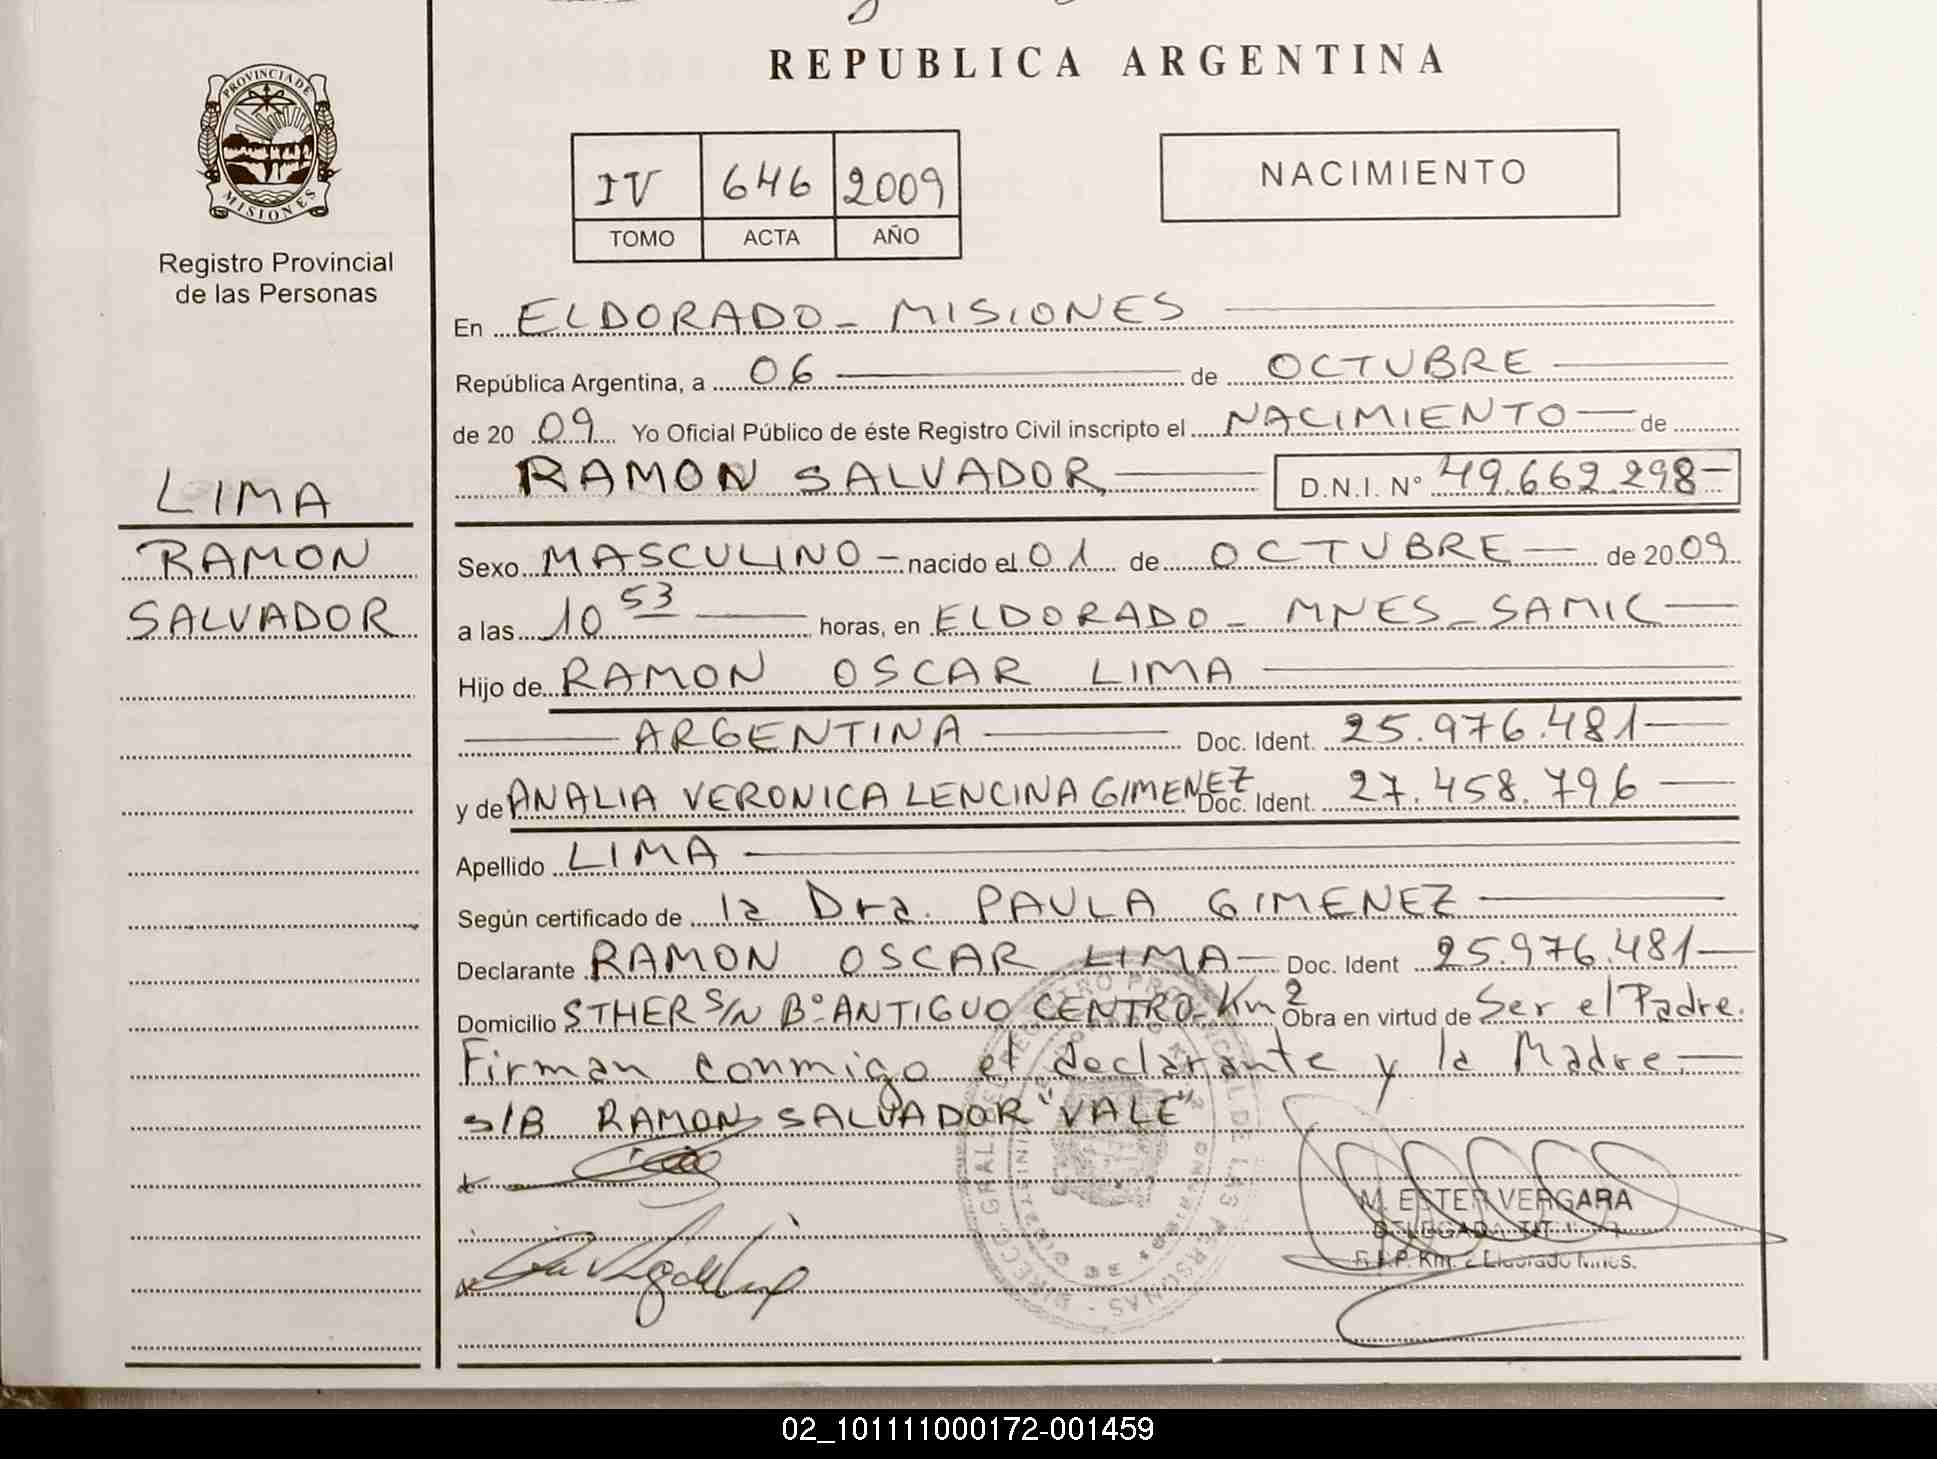 REPUBLICA ARGENTINA
PROVINCIA DE
MISIONES
Registro Provincial
de las Personas
IV 646 2009
TOMO ACTA AÑO
NACIMIENTO
LIMA
RAMON
SALVADOR
En ELDORADO - MISIONES
República Argentina, a 06 de OCTUBRE
de 20 09 Yo Oficial Público de éste Registro Civil inscripto el NACIMIENTO de
RAMON SALVADOR D.N.I. N° 49.662.298-
Sexo MASCULINO - nacido el 01 de OCTUBRE de 20 09
a las 10 53 horas, en ELDORADO - MNES - SAMIC
Hijo de RAMON OSCAR LIMA
ARGENTINA Doc. Ident. 25.976.481
y de ANALIA VERONICA LENCINA GIMENEZ Doc. Ident. 27.458.796
Apellido LIMA
Según certificado de la Dra. PAULA GIMENEZ
Declarante RAMON OSCAR LIMA - Doc. Ident 25.976.481
Domicilio STHER S/N B° ANTIGUO CENTRO - Km 2 Obra en virtud de Ser el Padre.
Firman conmigo el declarante y la Madre.
S/B RAMON SALVADOR "VALE"
M. ESTER VERGARA
DELEGADA
Km. 2 Eldorado Mnes.
02_101111000172-001459